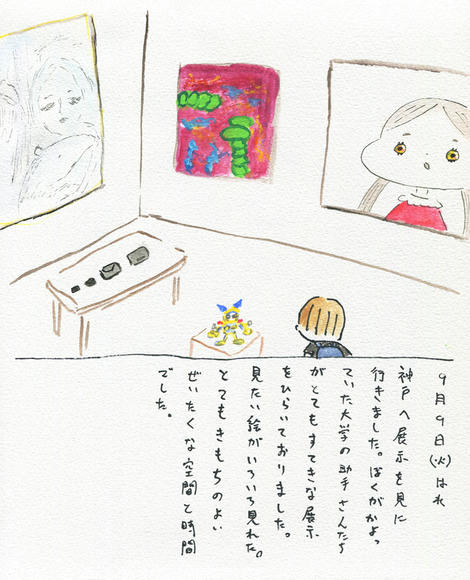 9月9日(火)はれ
神戸へ展示を見に
行きました。ぼくがかよっ
ていた大学の助手さんたち
がとてもすてきな展示
をひらいておりました。
見たい絵がいろいろ見れた。
とてもきもちのよい
ぜいたくな空間と時間
でした。